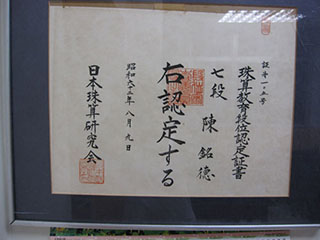 証第一〇五号
珠算教育段位認定証書
七段 陳銘德
右認定する
昭和六三年八月九日
日本珠算研究会